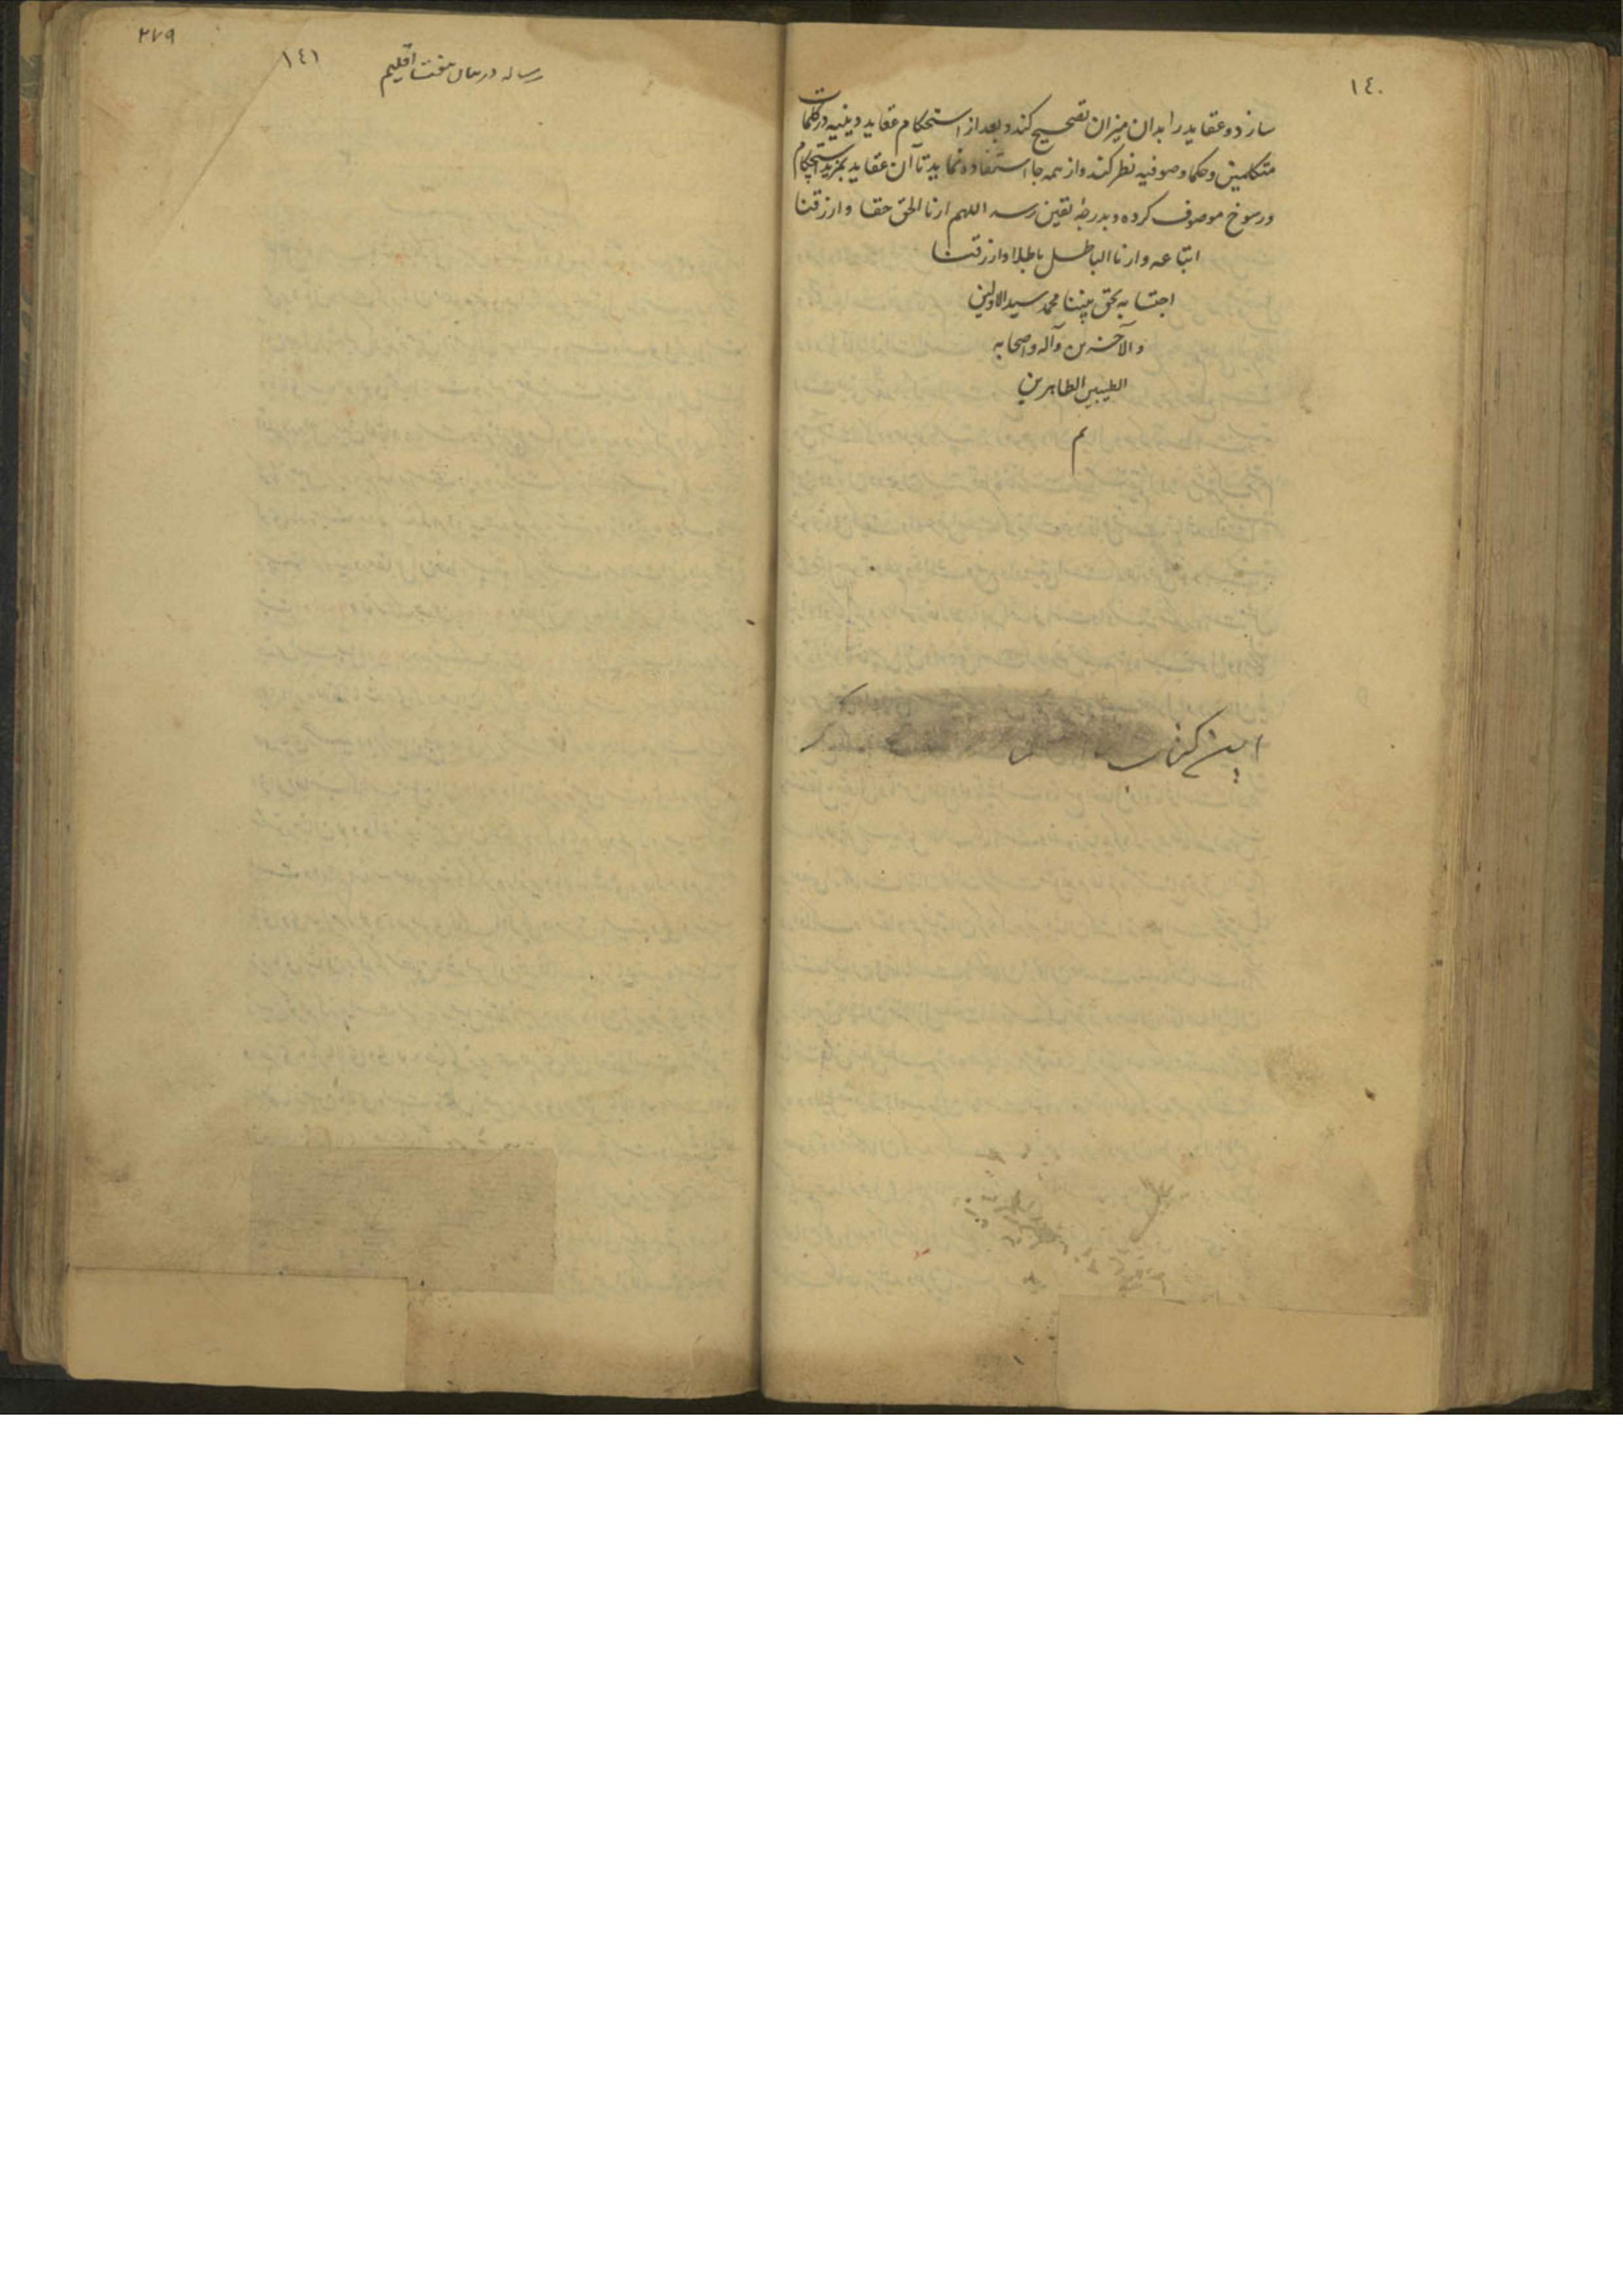 ١٤٠
سازد و عقاید را بدان میزان تصحیح کند و بعد از استحکام عقاید دینیه در کلمات
متکلمین و حکما و صوفیه نظر کند و از همه جا استفاده نماید تا آن عقاید بمزید استحکام
و رسوخ موصوف کرده و بدرجه یقین رسد اللهم ارنا الحق حقا و ارزقنا
اتباعه و ارنا الباطل باطلا و ارزقنا
اجتنابه بحق نبینا محمد سید الاولین
و الآخرین و آله و اصحابه
الطیبین الطاهرین
تم
این کتاب
٢٧٩
١٤١
رساله در بیان هفت اقلیم